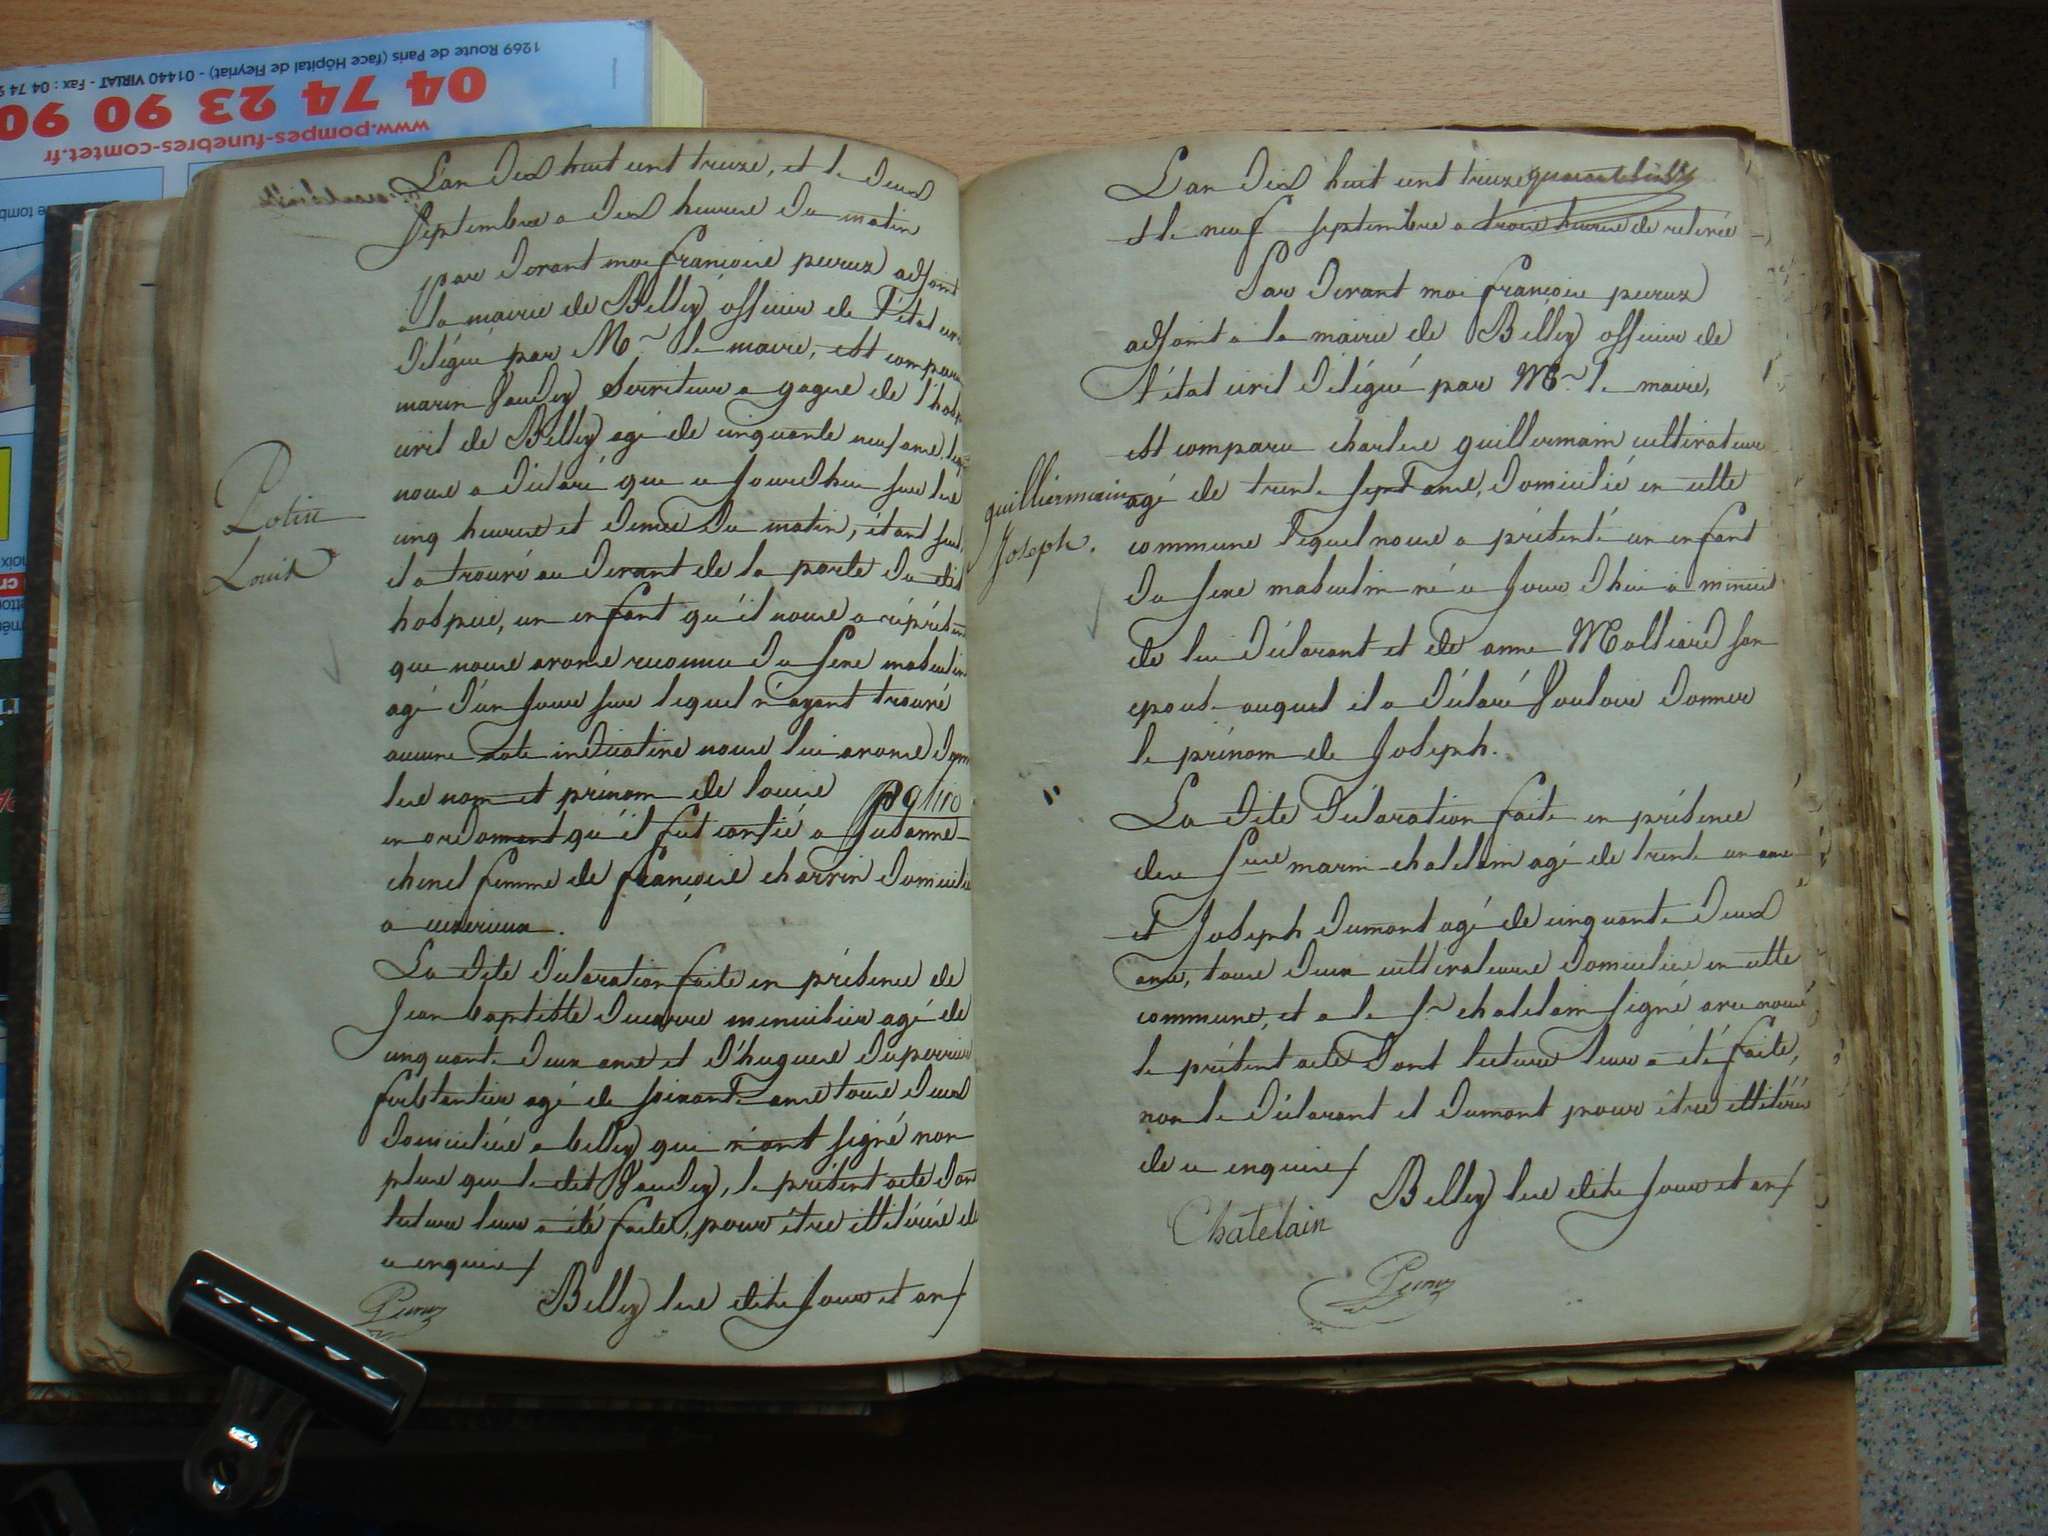 1269 Route de Paris (face Hôpital de Fleyriat) - 01440 VIRIAT - Fax : 04 74
04 74 23 90 90
www.pompes-funebres-comtet.fr
L'an dix huit cent treize, et le deux
septembre a dix heures du matin
par devant moi françois perrux adjoint
a la mairie de Belley officier de l'état
délégué par Mr le maire, est comparu
marin Vaudey serviteur a gagne de l'hos
civil de Belley agé de cinquante neuf ans,
nous a déclaré que ce jourdhui sur les
cinq heures et demies du matin, étant
il a trouvé au devant de la porte du dit
hospice, un enfant qu'il nous a représenté
que nous avons reconnu du sexe masculin
agé d'un jour sur lequel n'ayant trouvé
aucune note indicative nous lui avons donné
les nom et prénom de louis Potin
en ordonnant qu'il fut confié a Susanne
chenel femme de françois charvin domicilié
a
La dite déclaration faite en présence de
Jean baptiste menuisier agé de
cinquante deux ans et d'hugues duperrier
agé de soixante ans tous deux
domiciliés a belley qui n'ont signé non
plus que le dit Vaudey, le présent acte dont
lecture leur a été faite, pour être illitérés de
ce enquis
Belley les dits jour et an
Perrux
Potin
Louis
L'an dix huit cent treize
et le neuf septembre a trois heures de relevée
Par devant moi françois perrux
adjoint a la mairie de Belley officier de
l'état civil délégué par Mr le maire,
est comparu charles guillermain cultivateur
agé de trente sept ans, domicilié en cette
commune lequel nous a présenté un enfant
du sexe masculin né ce jour d'hui a minuit
de lui déclarant et de anne Malliard son
epouse auquel il a déclaré vouloir donner
le prénom de Joseph.
La dite déclaration faite en présence
des Srs marin chatelain agé de trente un ans
et Joseph dumont agé de cinquante deux
ans, tous deux cultivateurs domiciliés en cette
commune, et a le Sr chatelain signé avec nous
le présent acte dont lecture leur a été faite,
non le déclarant et dumont pour être illitérés
de ce enquis
Belley les dits jour et an
Chatelain
Perrux
guilliermain
Joseph.